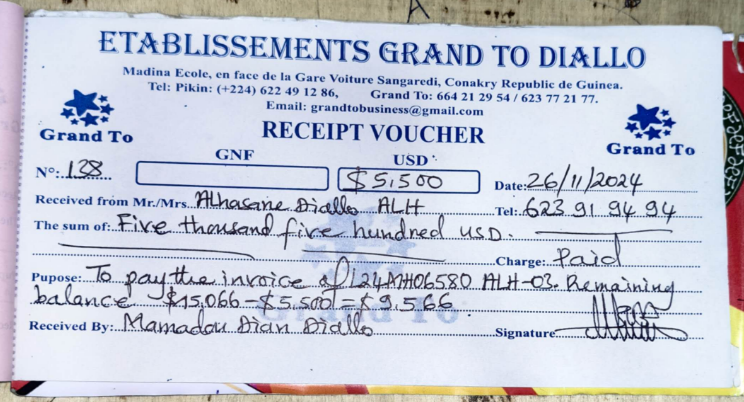 ETABLISSEMENTS GRAND TO DIALLO
Madina Ecole, en face de la Gare Voiture Sangaredi, Conakry Republic de Guinea.
Tel: Pikin: (+224) 622 49 12 86, Grand To: 664 21 29 54 / 623 77 21 77.
Email: grandtobusiness@gmail.com
Grand To
RECEIPT VOUCHER
Grand To
GNF USD
Nº: 138 $5,500 Date: 26/11/2024
Received from Mr./Mrs Alhasane Diallo ALH Tel: 623 91 94 94
The sum of: Five thousand five hundred USD.
Charge: Paid
Pupose: To pay the invoice of L24AHH06580 ALH-03. Remaining
balance $15.066-$5.500=$9.566
Grand To
Received By: Mamadou Dian Diallo Signature